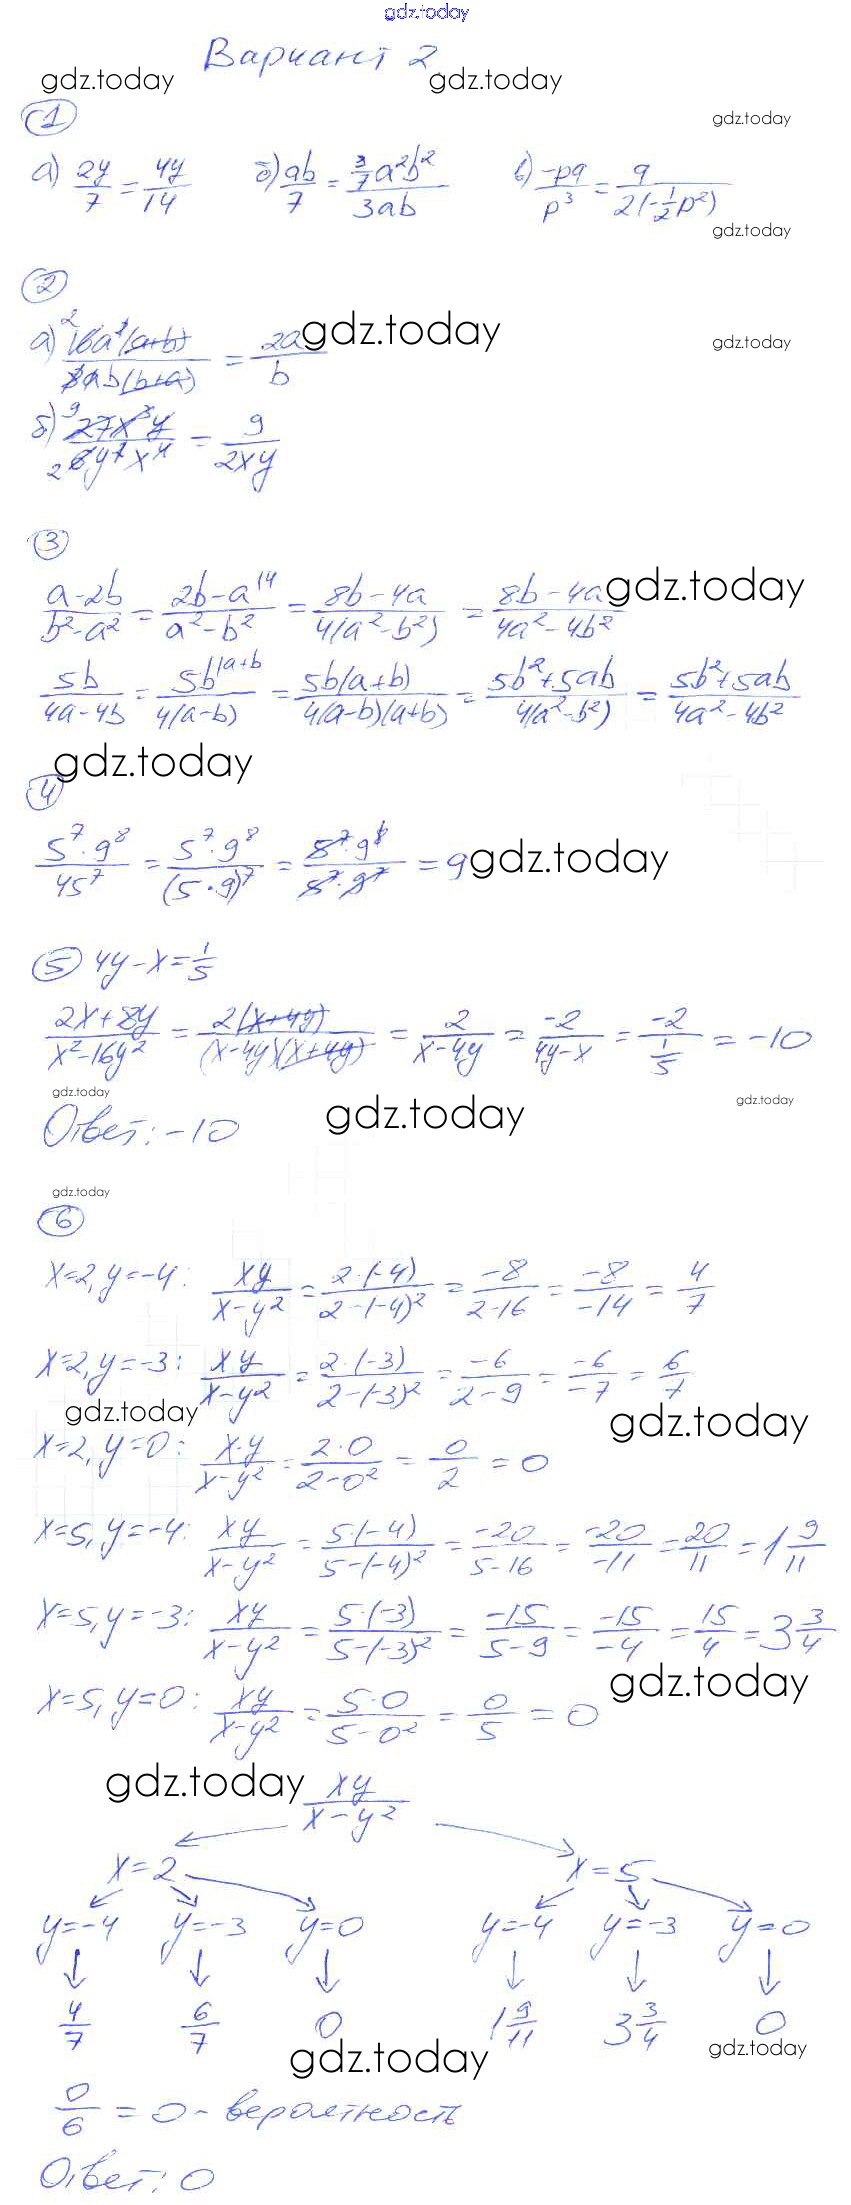 gdz.today
Вариант 2
gdz.today gdz.today
① gdz.today
а) 2y/7 = 4y/14 б) ab/7 = (3/7 a²b²)/(3ab) в) -pq/p³ = q/(2(-1/2 p²))
gdz.today
②
а) 16a²(a+b)/(8ab(b+a)) = 2a/b gdz.today gdz.today
б) 27x³y/(6y²x⁴) = 9/(2xy)
③
(a-2b)/(b²-a²) = (2b-a)/(a²-b²) = (8b-4a)/(4(a²-b²)) = (8b-4a)/(4a²-4b²) gdz.today
5b/(4a-4b) = 5b/(4(a-b)) = 5b(a+b)/(4(a-b)(a+b)) = (5b²+5ab)/(4(a²-b²)) = (5b²+5ab)/(4a²-4b²)
gdz.today
④
5⁷·9⁸/45⁷ = 5⁷·9⁸/(5·9)⁷ = 5⁷·9⁸/(5⁷·9⁷) = 9 gdz.today
⑤ 4y-x=1/5
(2x+8y)/(x²-16y²) = 2(x+4y)/((x-4y)(x+4y)) = 2/(x-4y) = -2/(4y-x) = -2/(1/5) = -10
gdz.today gdz.today
Ответ: -10 gdz.today
gdz.today
⑥
x=2, y=-4: xy/(x-y²) = 2·(-4)/(2-(-4)²) = -8/(2-16) = -8/-14 = 4/7
x=2, y=-3: xy/(x-y²) = 2·(-3)/(2-(-3)²) = -6/(2-9) = -6/-7 = 6/7
gdz.today gdz.today
x=2, y=0: x·y/(x-y²) = 2·0/(2-0²) = 0/2 = 0
x=5, y=-4: xy/(x-y²) = 5·(-4)/(5-(-4)²) = -20/(5-16) = -20/-11 = 20/11 = 1 9/11
x=5, y=-3: xy/(x-y²) = 5·(-3)/(5-(-3)²) = -15/(5-9) = -15/-4 = 15/4 = 3 3/4
gdz.today
x=5, y=0: xy/(x-y²) = 5·0/(5-0²) = 0/5 = 0
gdz.today xy/(x-y²)
x=2 x=5
y=-4 y=-3 y=0 y=-4 y=-3 y=0
4/7 6/7 0 1 9/11 3 3/4 0
gdz.today gdz.today
0/6 = 0 - вероятность
Ответ: 0